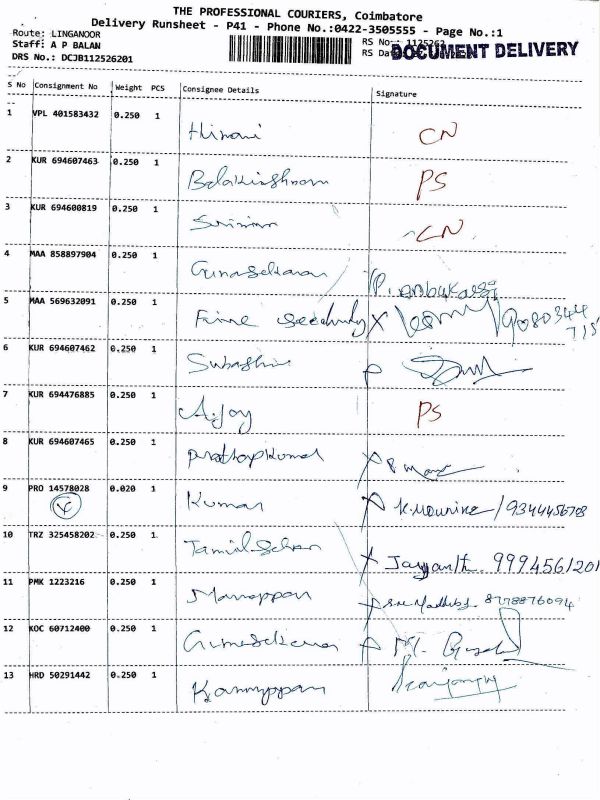 THE PROFESSIONAL COURIERS, Coimbatore
Delivery Runsheet - P41 - Phone No.:0422-3505555 - Page No.:1
Route: LINGANOOR
Staff: A P BALAN
DRS No.: DCJB112526201
RS No.:
RS Dat
DOCUMENT DELIVERY
S No Consignment No Weight PCS Consignee Details Signature
1 VPL 401583432 0.250 1 Himani CN
2 KUR 694607463 0.250 1 Balakrishnan PS
3 KUR 694600819 0.250 1 CN
4 MAA 858897904 0.250 1 Gunasekaran P. Anbukarasi
5 MAA 569632091 0.250 1 9080344
715
6 KUR 694607462 0.250 1
7 KUR 694476885 0.250 1 Ajoy PS
8 KUR 694607465 0.250 1 Prathapkumar
9 PRO 14578028 0.020 1 Kumar K. Mounika / 9344456708
10 TRZ 325458202 0.250 1. Jayanth. 9994561201
11 PMK 1223216 0.250 1 Manoppan 8778876094
12 KOC 60712400 0.250 1 Gunasekaran
13 HRD 50291442 0.250 1 Kannyppan